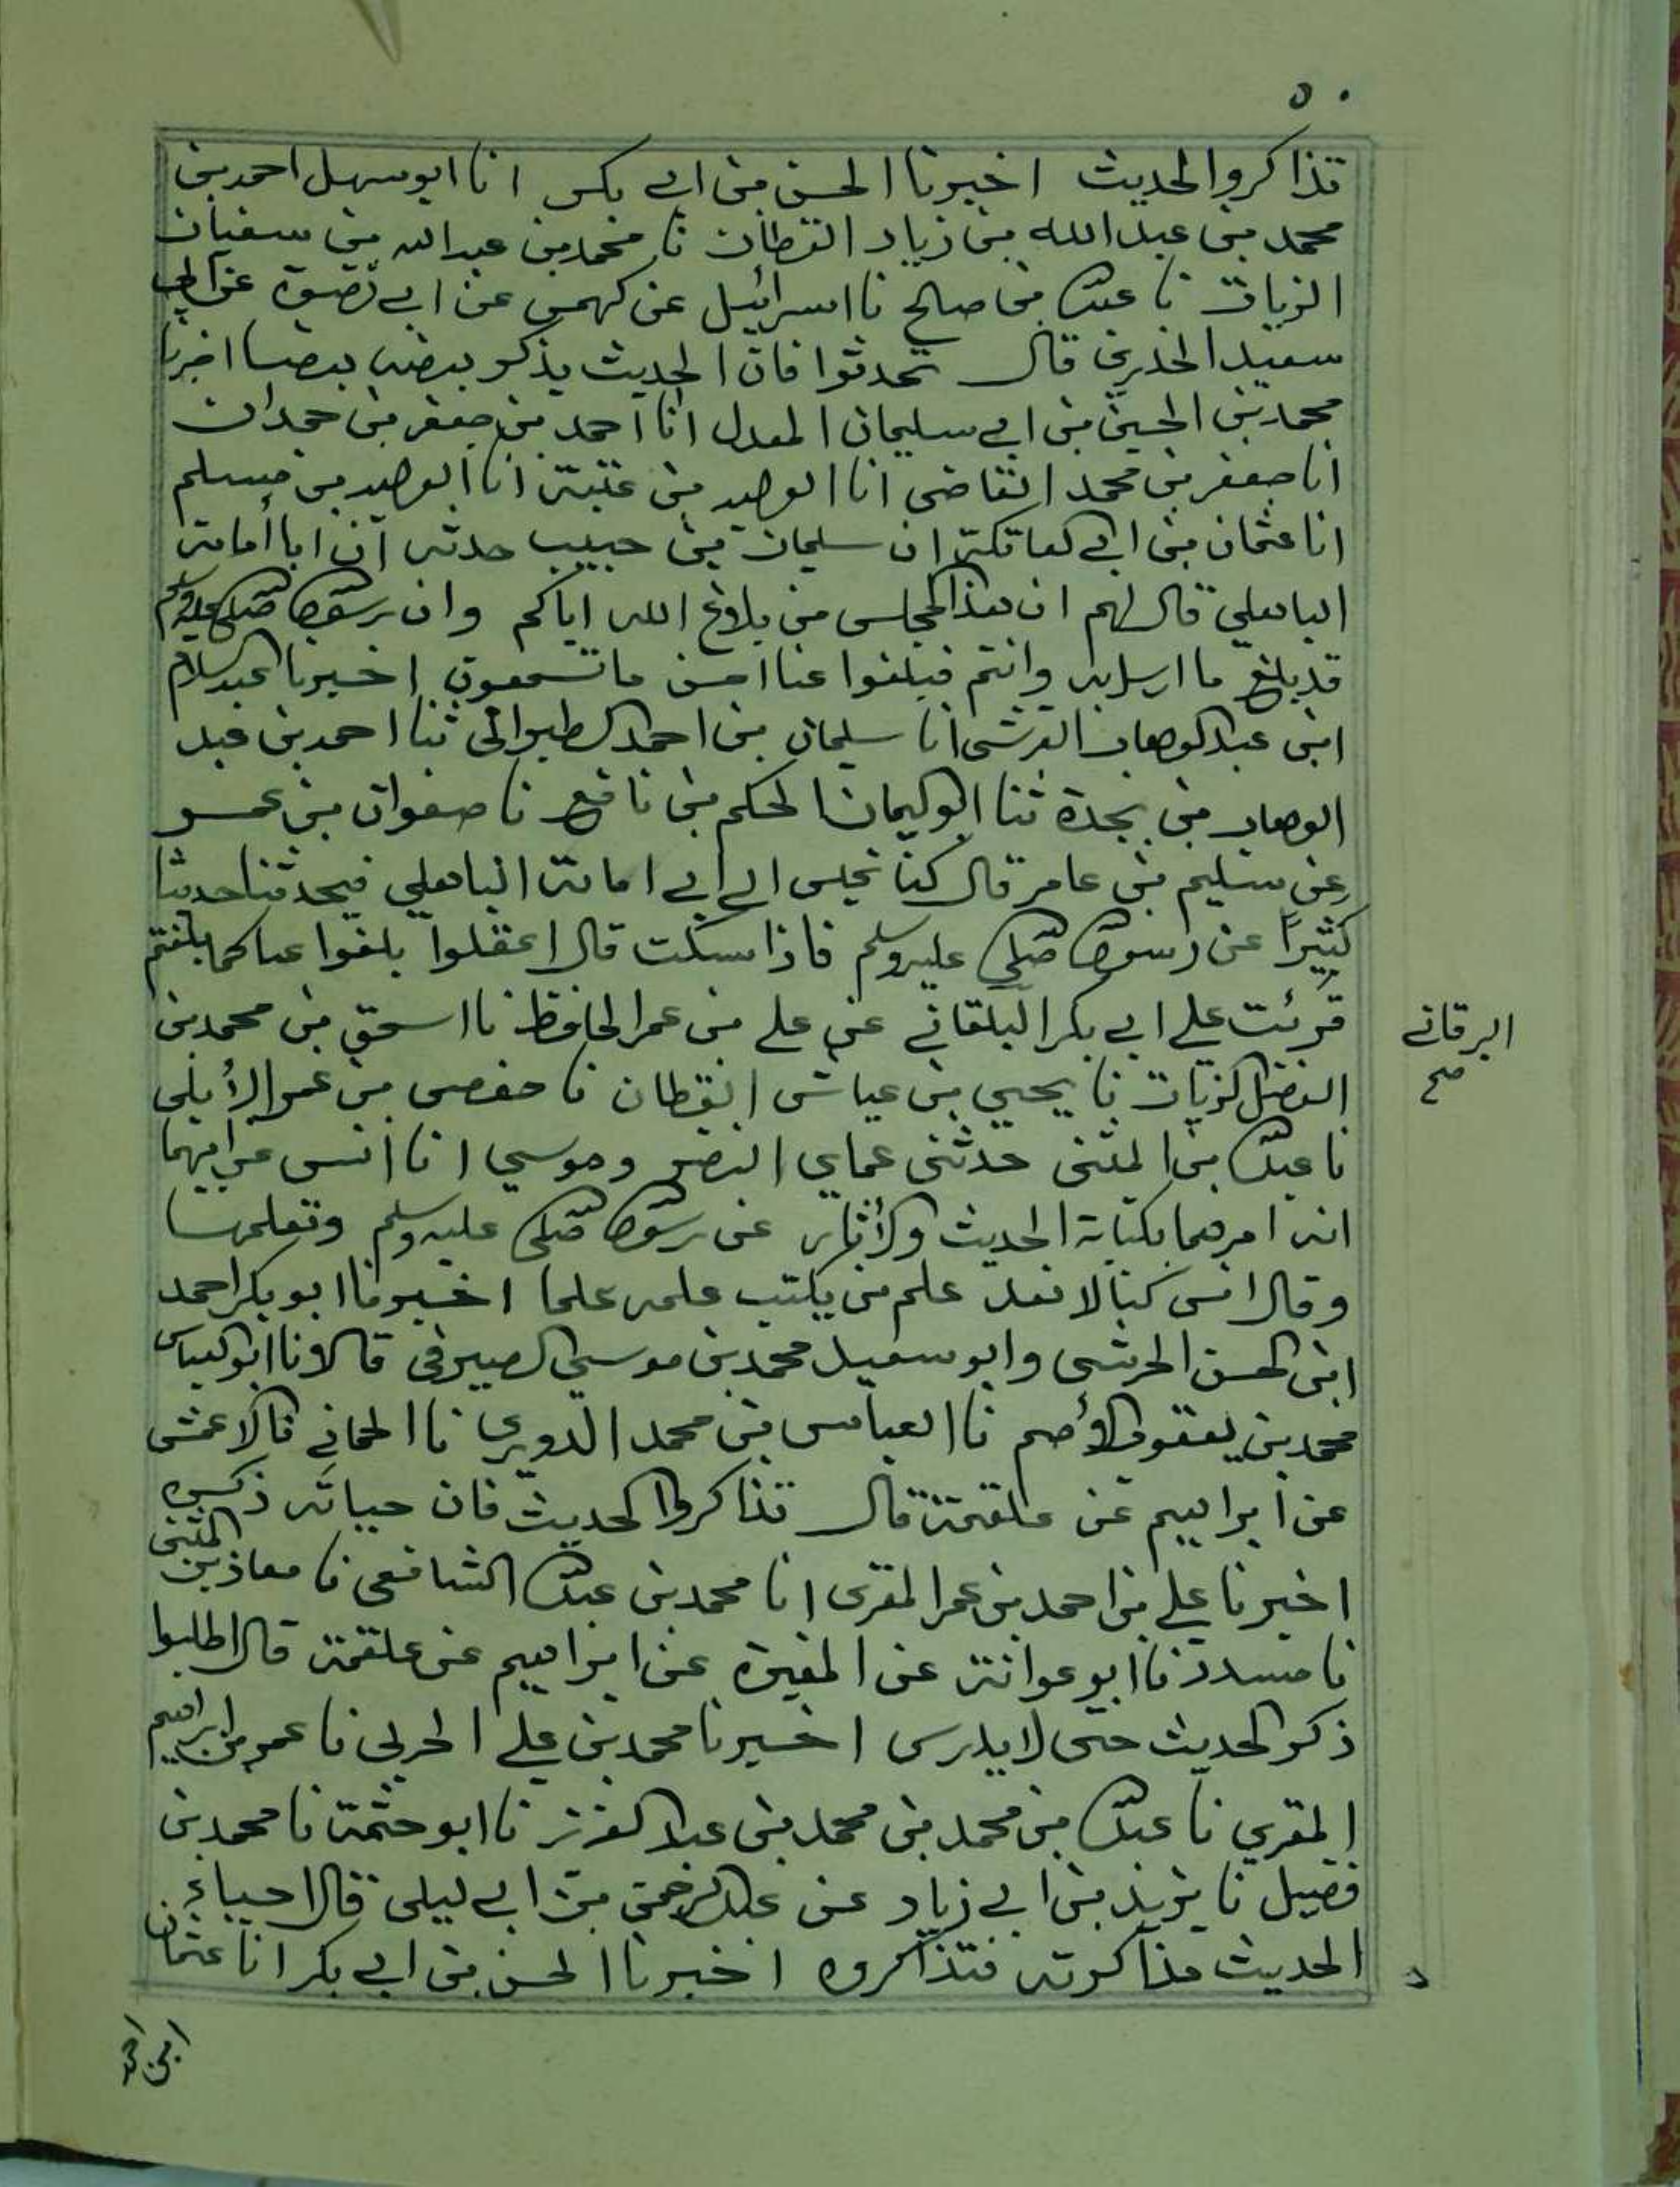 ٥٠
تذاكروا الحديث اخبرنا الحسن بن ابي بكر انا ابو سهل احمد بن
محمد بن عبد الله بن زياد القطان نا محمد بن عبد الله بن سفيان
الزيات نا عبد الله بن صالح نا اسرائيل عن كهمس عن ابي نضرة عن ابي
سعيد الخدري قال تحدثوا فان الحديث يذكر بعضه بعضا اخبرنا
محمد بن الحسين بن ابي سليمان المعدل انا احمد بن جعفر بن حمدان
انا جعفر بن محمد القاضي انا الوليد بن عتبة انا الوليد بن مسلم
انا عثمان بن ابي العاتكة ان سليمان بن حبيب حدثه ان ابا أمامة
الباهلي قال لهم ان هذا المجلس من بلاغ الله اياكم وان رسول الله صلى الله عليه وسلم
قد بلغ ما ارسل به وانتم فبلغوا عنا احسن ما تسمعون اخبرنا عبد السلام
ابن عبد الوهاب القرشي انا سليمان بن احمد الطبراني ثنا احمد بن عبد
الوهاب بن نجدة ثنا ابو اليمان الحكم بن نافع نا صفوان بن عمرو
عن سليم بن عامر قال كنا نجلس الى ابي امامة الباهلي فيحدثنا حديثا
كثيرًا عن رسول الله صلى الله عليه وسلم فاذا سكت قال اعقلوا بلغوا عنا كما بلغتم
قرئت علي ابي بكر البلقاني عن علي بن عمر الحافظ نا اسحق بن محمد بن
الفضل الزيات نا يحيي بن عياش القطان نا حفص بن عمر الأيلي
نا عبد الله بن المثنى حدثني عماي النضر وموسي انا انس عن ابيهما
انه امرهما بكتابة الحديث والأثار عن رسول الله صلى الله عليه وسلم وتعلمها
وقال انس كنا لا نعد علم من يكتب علمه علما اخبرنا ابو بكر احمد
ابن الحسن الحرشي وابو سعيد محمد بن موسي الصيرفي قالا نا ابو العباس
محمد بن يعقوب الأصم نا العباس بن محمد الدوري نا الحماني نا الاعمش
عن ابراهيم عن علقمة قال تذاكروا الحديث فان حياته ذكره
اخبرنا علي بن احمد بن عمر المقرى انا محمد بن عبد الله الشافعي نا معاذ بن المثنى
نا مسدد نا ابو عوانة عن المغيرة عن ابراهيم عن علقمة قال اطلبوا
ذكر الحديث حتى لا يدرس اخبرنا محمد بن علي الحربي نا عمر بن ابراهيم
المقري نا عبد الله بن محمد بن محمد بن عبد العزيز نا ابو خثمة نا محمد بن
فضيل نا يزيد بن ابي زياد عن عبد الرحمن بن ابي ليلى قال احياء
الحديث مذاكرته فتذاكروه اخبرنا الحسن بن ابي بكر انا عثمان
ابن احمد
البرقاني
صح